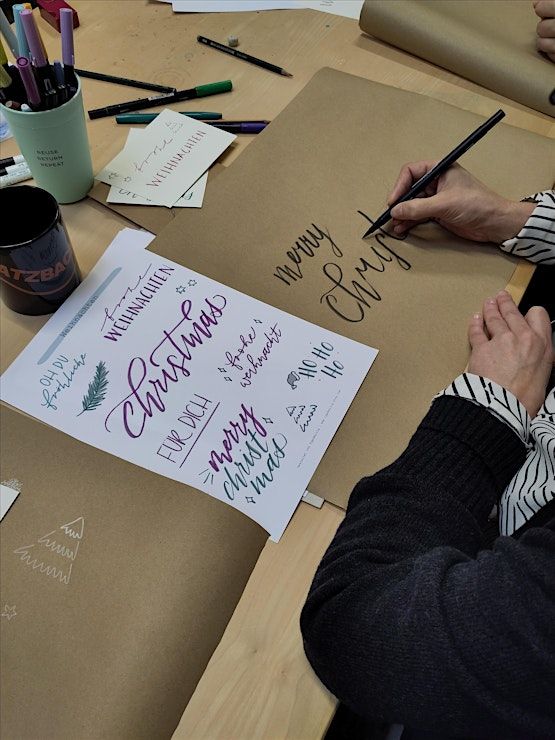 REUSE
RETURN
REPEAT
frohe
WEIHNACHTEN
ATZBAC
merry
Christ
Weihnachten
frohe
WEIHNACHTEN
OH DU
fröhliche
christmas
frohe
weihnacht
HO HO
HO
FÜR DICH
merry
christ
mas